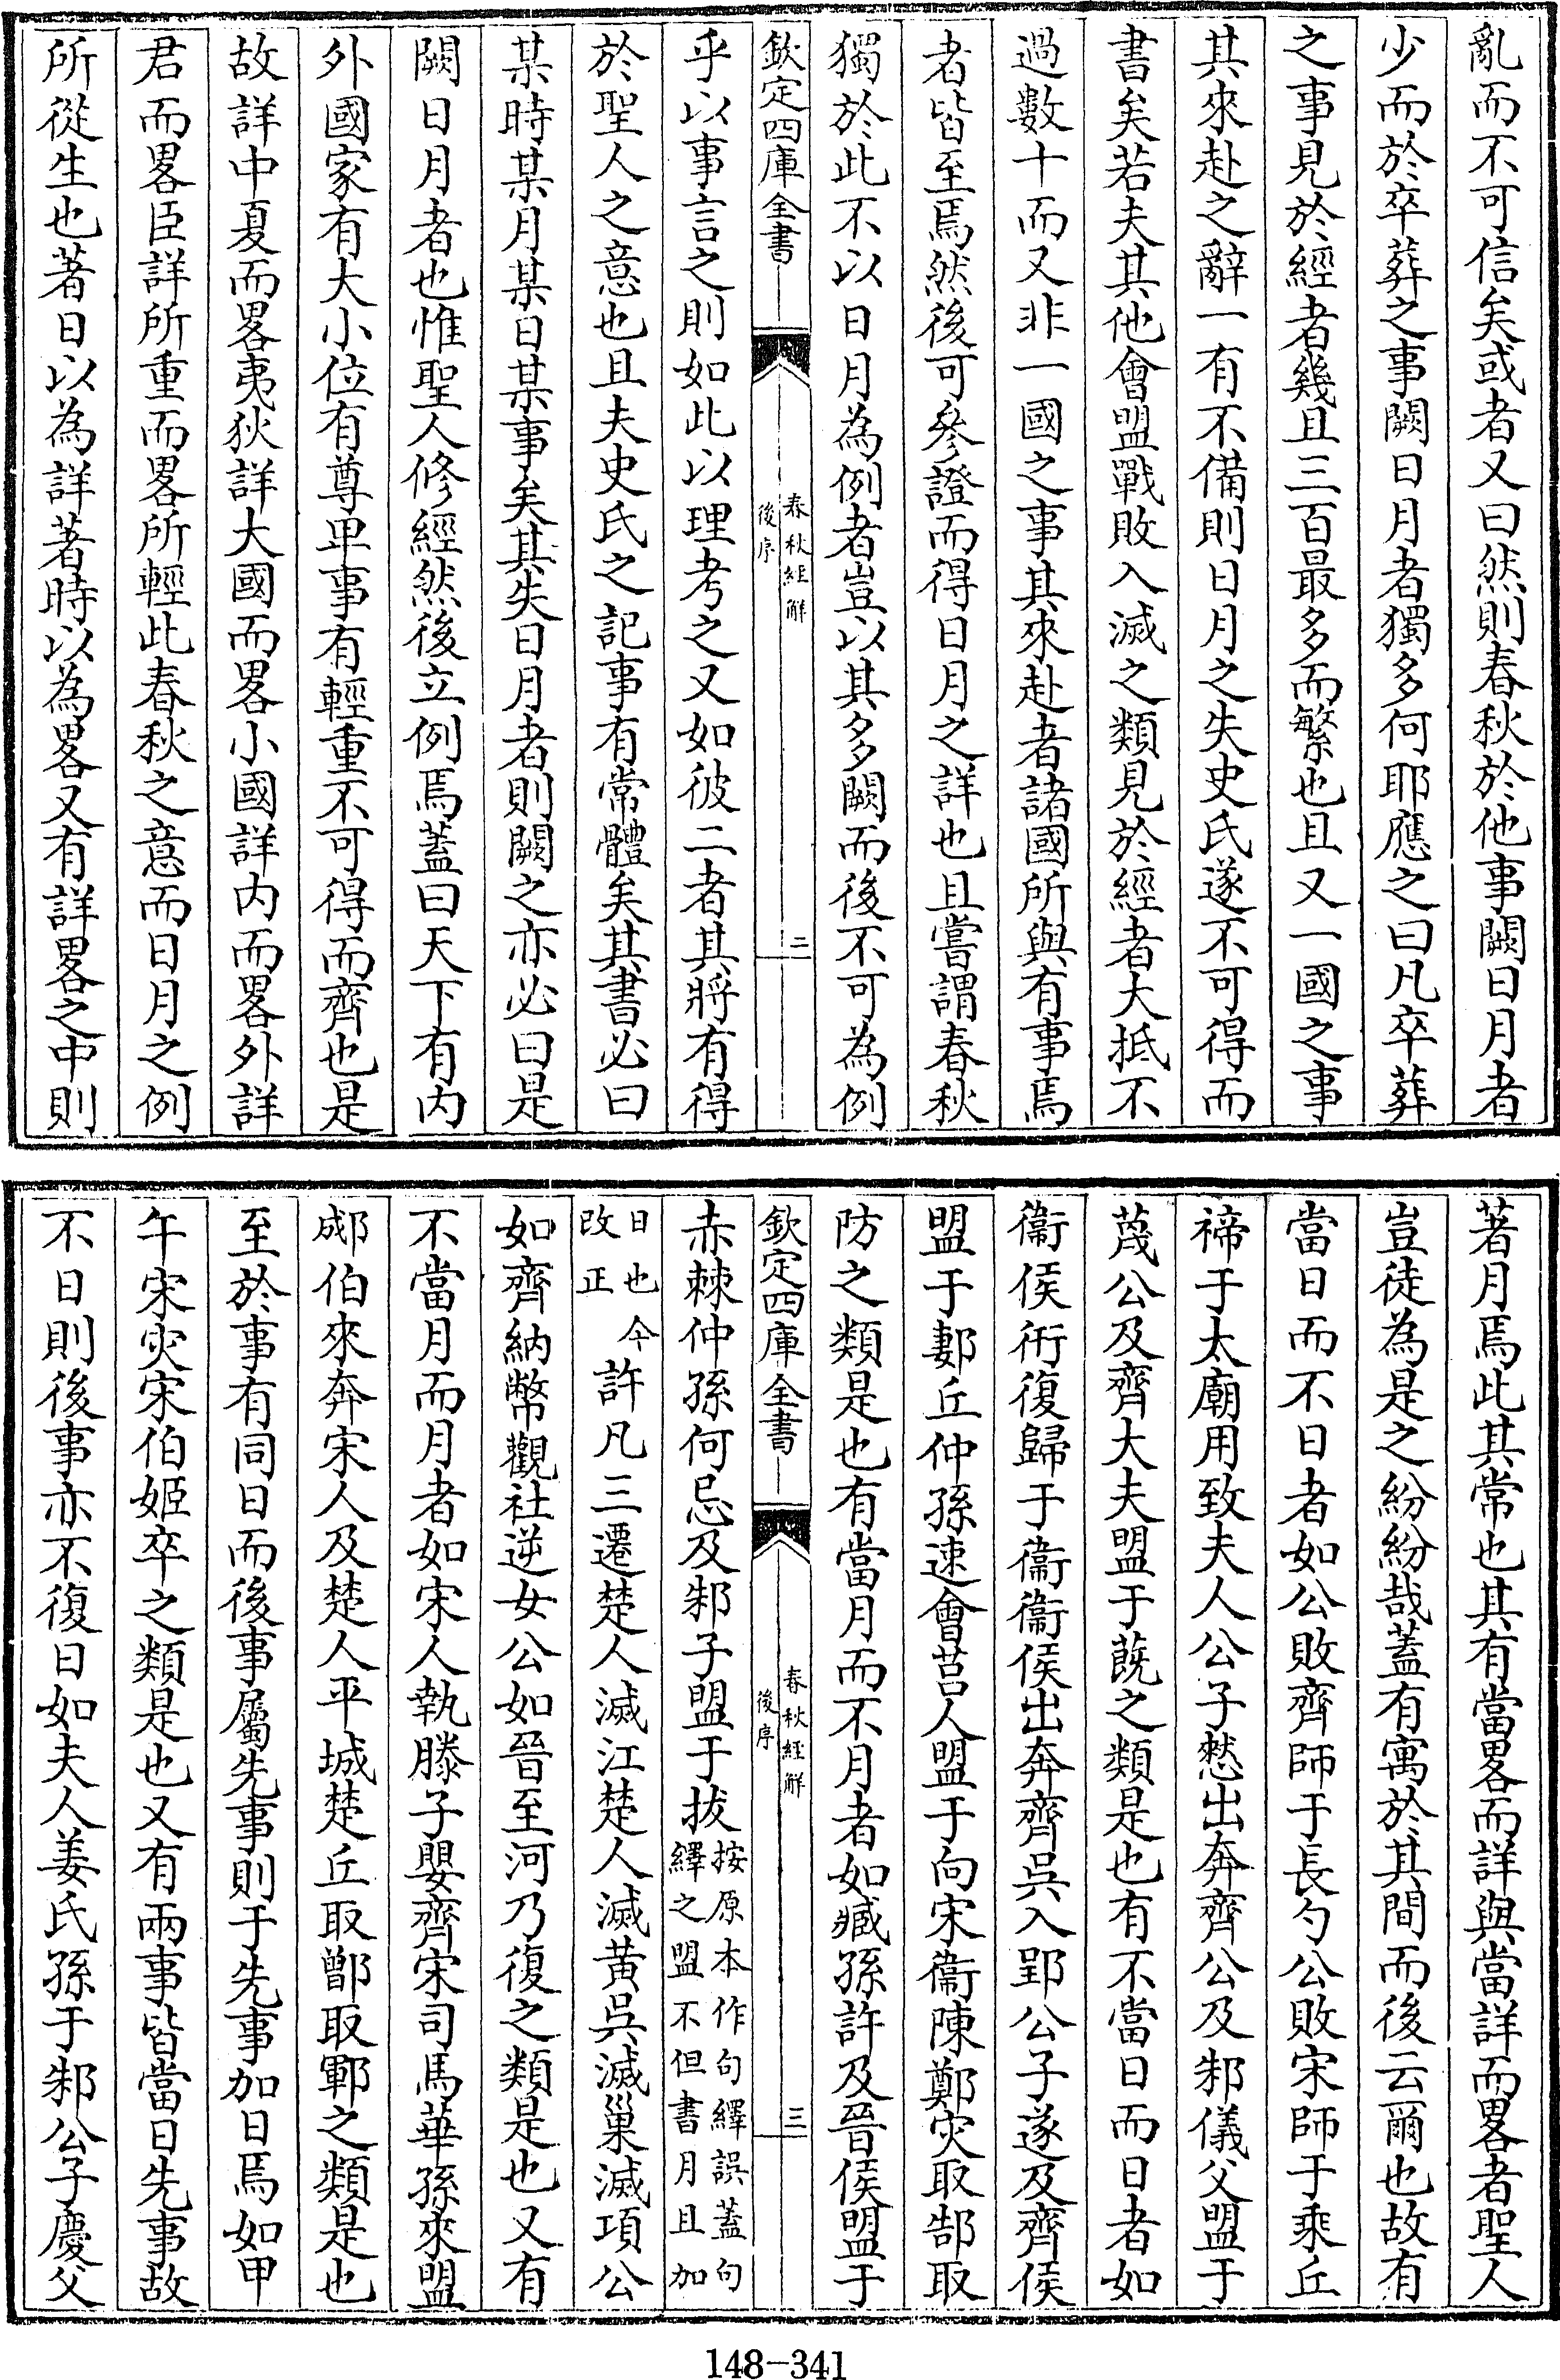 亂而不可信矣或者又曰然則春秋於他事闕日月者
少而於卒葬之事闕日月者獨多何耶應之曰凡卒葬
之事見於經者幾且三百最多而繁也且又一國之事
其來赴之辭一有不備則日月之失史氏遂不可得而
書矣若夫其他會盟戰敗入滅之類見於經者大抵不
過數十而又非一國之事其來赴者諸國所與有事焉
者皆至焉然後可參證而得日月之詳也且嘗謂春秋
獨於此不以日月為例者豈以其多闕而後不可為例
欽定四庫全書
春秋經解
後序
二
乎以事言之則如此以理考之又如彼二者其將有得
於聖人之意也且夫史氏之記事有常體矣其書必曰
某時某月某日某事矣其失日月者則闕之亦必曰是
闕日月者也惟聖人修經然後立例焉蓋曰天下有内
外國家有大小位有尊卑事有輕重不可得而齊也是
故詳中夏而畧夷狄詳大國而畧小國詳内而畧外詳
君而畧臣詳所重而畧所輕此春秋之意而日月之例
所從生也著日以為詳著時以為畧又有詳畧之中則
著月焉此其常也其有當畧而詳與當詳而畧者聖人
豈徒為是之紛紛哉蓋有寓於其間而後云爾也故有
當日而不日者如公敗齊師于長勺公敗宋師于乘丘
禘于太廟用致夫人公子慭出奔齊公及邾儀父盟于
蔑公及齊大夫盟于蔇之類是也有不當日而日者如
衞侯衎復歸于衞衞侯出奔齊吳入郢公子遂及齊侯
盟于郪丘仲孫速會莒人盟于向宋衞陳鄭災取郜取
防之類是也有當月而不月者如臧孫許及晉侯盟于
欽定四庫全書
春秋經解
後序
三
赤棘仲孫何忌及邾子盟于拔按原本作句繹誤蓋句繹之盟不但書月且加
日也今改正許凡三遷楚人滅江楚人滅黃吳滅巢滅項公
如齊納幣觀社逆女公如晉至河乃復之類是也又有
不當月而月者如宋人執滕子嬰齊宋司馬華孫來盟
郕伯來奔宋人及楚人平城楚丘取鄫取鄆之類是也
至於事有同日而後事屬先事則于先事加日焉如甲
午宋災宋伯姬卒之類是也又有兩事皆當日先事故
不日則後事亦不復日如夫人姜氏孫于邾公子慶父
148-341